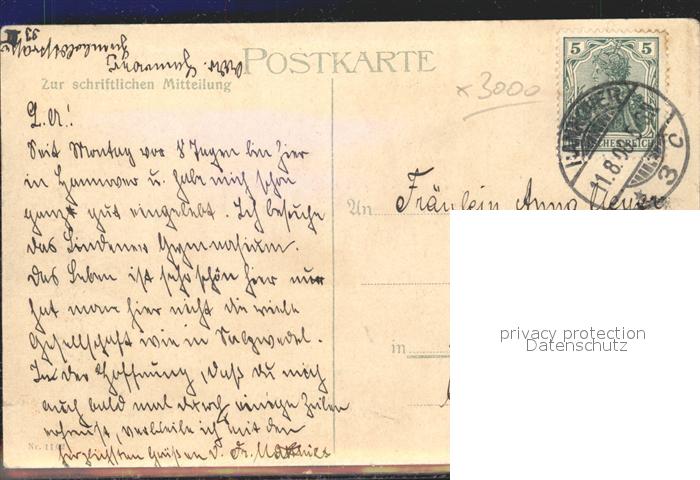 Adr. Hannover
Humboldtstraße
33 II
POSTKARTE
Zur schriftlichen Mitteilung
× 3000
5 5
DEUTSCHES REICH
HANNOVER
11.8.08
* 3 c
L. A.!
Seit Montag vor 8 Tagen bin hier
in Hannover u. habe mich schon
ganz gut eingelebt. Ich besuche
das Lindener Gymnasium.
Das Leben ist sehr schön hier nur
hat man hier nicht die viele
Gesellschaft wie in Salzwedel.
In der Hoffnung, daß du mich
auch bald mal durch einige Zeilen
erfreust, verbleibe ich mit den
herzlichsten Grüßen d. Fr.
An Fräulein Anna
in
Nr. 11
privacy protection
Datenschutz